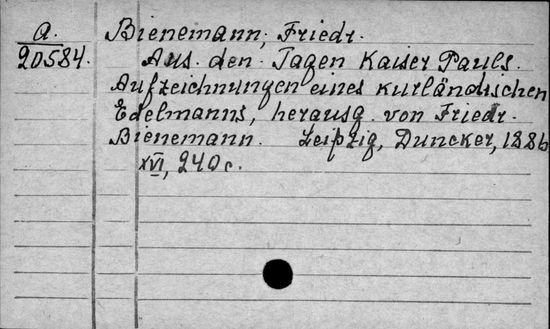 A. Bienemann, Friedr.
20584. Aus den Tagen Kaiser Pauls.
Aufzeichnungen eines kurländischen
Edelmanns, herausg. von Friedr.
Bienemann. Leipzig, Duncker, 1886
XVI, 240 с.